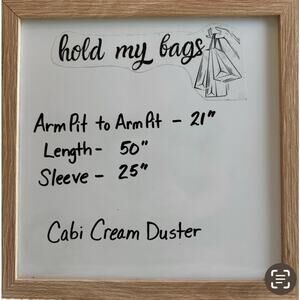 hold my bags
ArmPit to ArmPit - 21"
Length - 50"
Sleeve - 25"
Cabi Cream Duster